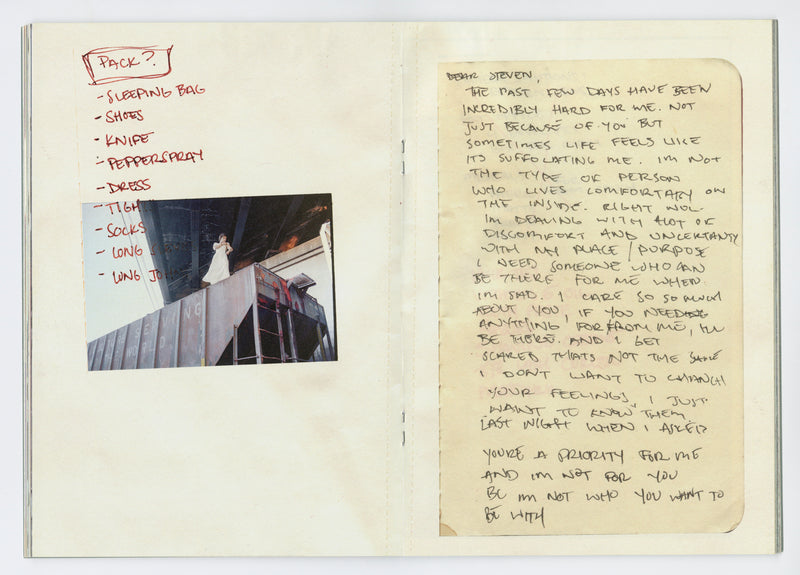 PACK?
- SLEEPING BAG
- SHOES
- KNIFE
- PEPPERSPRAY
- DRESS
- TIGH
- SOCKS
- LONG
- LONG JO
WORLD
DEAR STEVEN,
THE PAST FEW DAYS HAVE BEEN
INCREDIBLY HARD FOR ME. NOT
JUST BECAUSE OF YOU BUT
SOMETIMES LIFE FEELS LIKE
ITS SUFFOCATING ME. IM NOT
THE TYPE OF PERSON
WHO LIVES COMFORTABLY ON
THE INSIDE. RIGHT NOW
IM DEALING WITH ALOT OF
DISCOMFORT AND UNCERTANTY
WITH MY PLACE / PURPOSE
I NEED SOMEONE WHO CAN
BE THERE FOR ME WHEN
IM SAD. I CARE SO SO MUCH
ABOUT YOU, IF YOU NEEDING
ANYTHING FOR FROM ME, I'LL
BE THERE. AND I GET
SCARED THATS NOT THE SAME
I DON'T WANT TO CHANGE
YOUR FEELINGS, I JUST
WANT TO KNOW THEM
LAST NIGHT WHEN I ASKED?
YOU'RE A PRIORITY FOR ME
AND IM NOT FOR YOU
BC IM NOT WHO YOU WANT TO
BE WITH